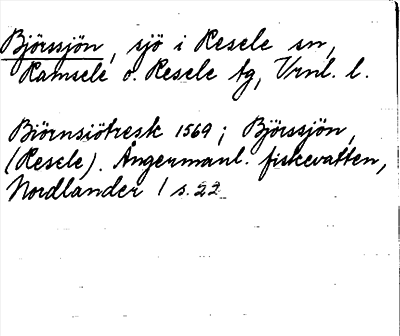 Björssjön, sjö i Resele sn,
Ramsele o. Resele tg, Vrnl. l.
Biörnsiötresk 1569; Björssjön,
(Resele). Ångermanl. fiskevatten,
Nordlander 1 s. 22